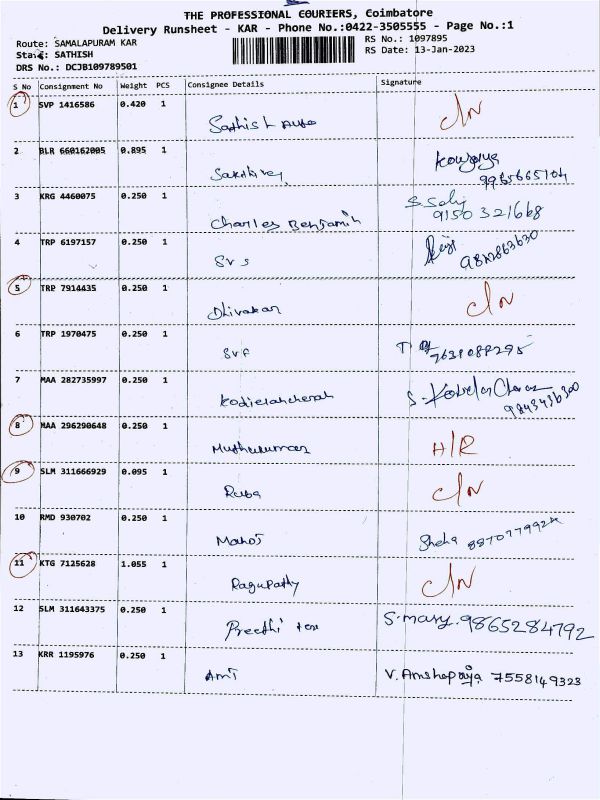 THE PROFESSIONAL COURIERS, Coimbatore
Delivery Runsheet - KAR - Phone No.:0422-3505555 - Page No.:1
Route: SAMALAPURAM KAR
RS No.: 1097895
Staff: SATHISH
RS Date: 13-Jan-2023
DRS No.: DCJB109789501
S No Consignment No Weight PCS Consignee Details Signature
1 SVP 1416586 0.420 1
Sathish Auto C/N
2 BLR 660162005 0.895 1
Sakthivel
3 KRG 4460075 0.250 1
Charles Benjamin 9150321668
4 TRP 6197157 0.250 1
SVS
5 TRP 7914435 0.250 1
Dhivakar C/N
6 TRP 1970475 0.250 1
7 MAA 282735997 0.250 1
8 MAA 296290648 0.250 1
Muthukumar H/R
9 SLM 311666929 0.095 1
Ruba C/N
10 RMD 930702 0.250 1
Manoj
11 KTG 7125628 1.055 1
Ragupathy C/N
12 SLM 311643375 0.250 1
Preethi tex S. mary. 9865284792
13 KRR 1195976 0.250 1
AMT V. Amshapriya 7558149323